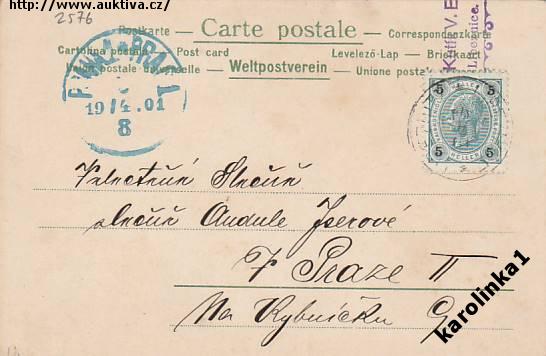 http://www.auktiva.cz/
2576
Postkarte — Carte postale — Correspondenzkarte
Cartolina postale — Post card — Levelező-Lap — Briefkaart
Union postale universelle — Weltpostverein — Unione postale
19/4.01
8
5 5
5 5
HELLER
Velectěné Slečně
slečně Andule Jserové
v Praze II
Na Rybníčku 9
karolinka1